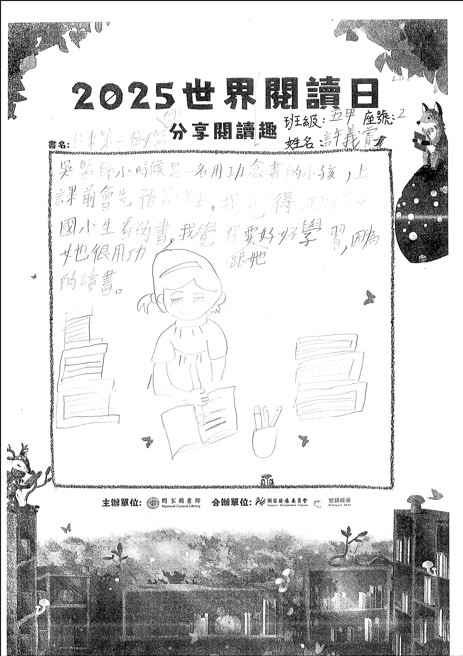 2025世界閱讀日
分享閱讀趣
班級:五甲 座號:2
書名:
姓名:許義
吳醫師小時候是一名用功念書的小孩,上
課前會先預習課本,我覺得
國小生看的書,我覺得要好好學習,因為
她很用功 跟她
的讀書。
主辦單位: 國家圖書館 National Central Library 合辦單位: 國家發展委員會